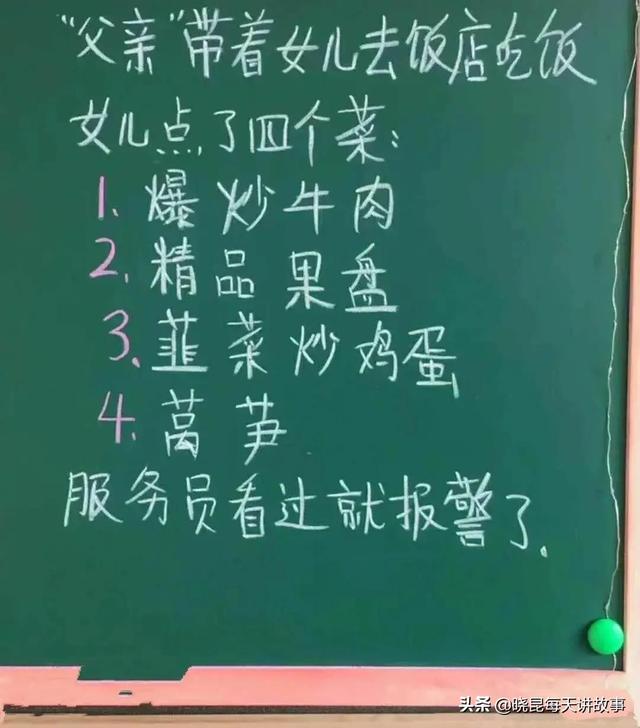 “父亲”带着女儿去饭店吃饭
女儿点了四个菜：
1. 爆炒牛肉
2. 精品果盘
3. 韮菜炒鸡蛋
4. 莴笋
服务员看过就报警了.
头条 @晓昆每天讲故事